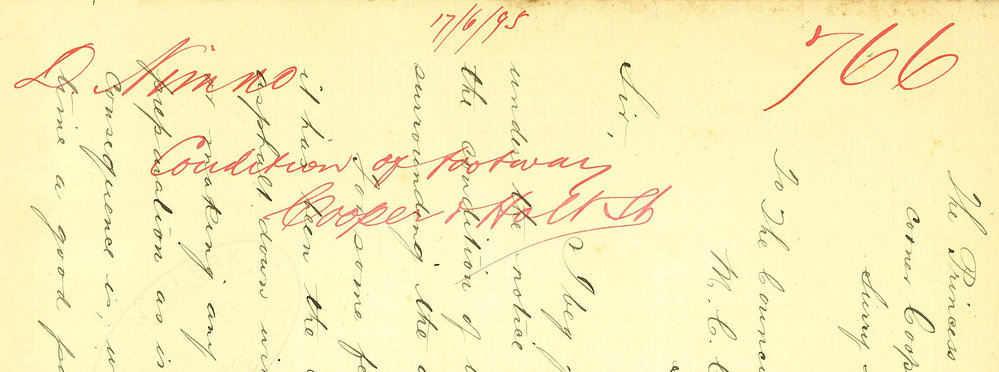 17/6/95
766
D. Nimmo
Condition of footway
Cooper & Holt St
The Princess
corner Coop
Surry
To The Counc
M. C. C
Sir,
I beg
under the notice
the condition of
surrounding the
For some
it has been the
asphalt down
making any
preparation as is
consequence is,
time a good pa